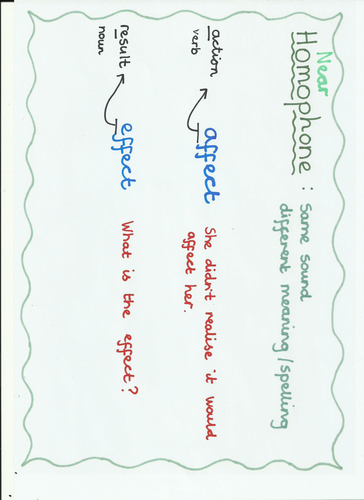 Near
Homophone : Same sound
different meaning/spelling
action
verb
affect She didn't realise it would
affect her.
result
noun
effect What is the effect?